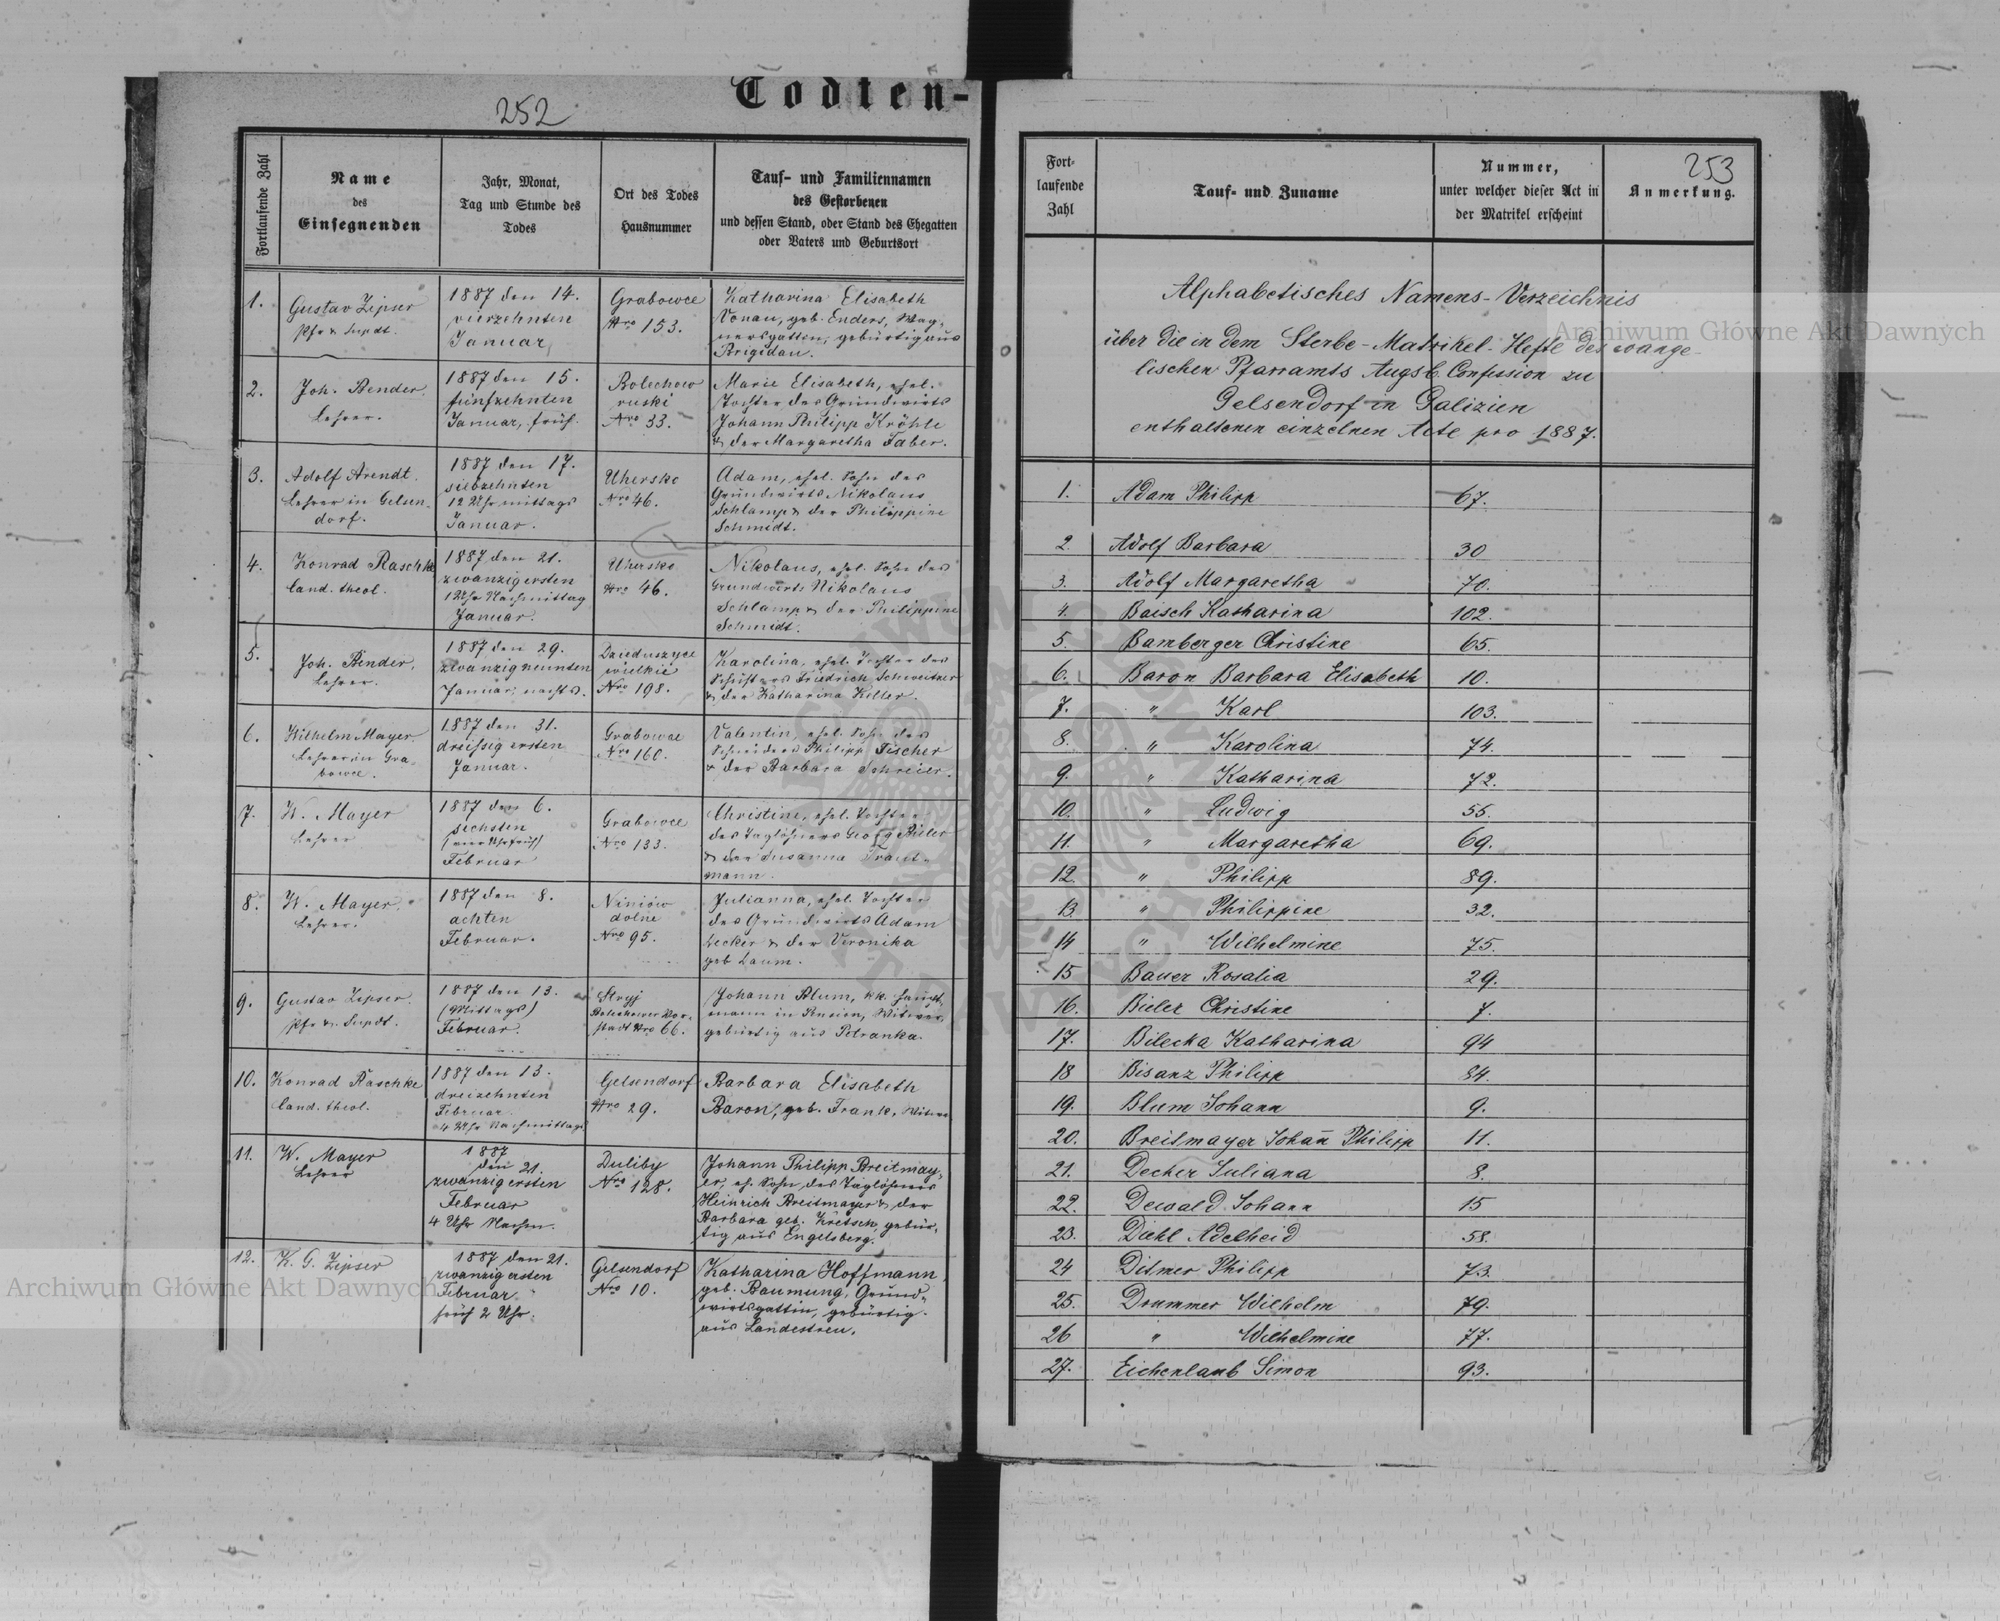 Todten-
252
Fortlaufende Zahl
Name
des
Einsegnenden
Jahr, Monat,
Tag und Stunde des
Todes
Ort des Todes
Hausnummer
Tauf- und Familiennamen
des Gestorbenen
und dessen Stand, oder Stand des Ehegatten
oder Vaters und Geburtsort
1.
Gustav Zipser
Pfr. & Supdt.
1887 den 14.
vierzehnten
Januar,
Grabowce
Nro 153.
Katharina Elisabeth
Vonau, geb. Enders, Wag-
nersgatten, gebürtig aus
Brigidau.
2.
Joh. Bender,
Lehrer.
1887 den 15.
fünfzehnten
Januar, früh.
Bolechow
ruski
Nro 33.
Marie Elisabeth, ehel.
Tochter des Grundwirts
Johann Philipp Kröhle
& der Margaretha Faber.
3.
Adolf Arendt.
Lehrer in Gelsen-
dorf.
1887 den 17.
siebzehnten
12 Uhr mittags
Januar.
Uhersko
Nro 46.
Adam, ehel. Sohn des
Grundwirts Nikolaus
Schlamp & der Philippine
Schmidt.
4.
Konrad Raschke
Cand. theol.
1887 den 21.
zwanzigersten
1 Uhr Nachmittag
Januar.
Uhersko
Nro 46.
Nikolaus, ehel. Sohn des
Grundwirts Nikolaus
Schlamp & der Philippine
Schmidt.
5.
Joh. Bender,
Lehrer.
1887 den 29.
zwanzigneunten
Januar, nachts.
Dzieduszyce
wielkie
Nro 198.
Karolina, ehel. Tochter des
Schusters Friedrich Schweitzer
& der Katharina Keller.
6.
Wilhelm Mayer.
Lehrer in Gra-
bowce.
1887 den 31.
dreissigersten
Januar.
Grabowce
Nro 160.
Valentin, ehel. Sohn des
Schneiders Philipp Fischer
& der Barbara Schreier.
7.
W. Mayer
Lehrer
1887 den 6.
sechsten
(vier Uhr früh)
Februar
Grabowce
Nro 133.
Christine, ehel. Tochter
des Taglöhners Georg Bieler
& der Susanna Traut-
mann.
8.
W. Mayer,
Lehrer.
1887 den 8.
achten
Februar.
Niniów
dolne
Nro 95.
Julianna, ehel. Tochter
des Grundwirts Adam
Decker & der Veronika
geb Daum.
9.
Gustav Zipser.
Pfr. & Supdt.
1887 den 13.
(Mittags)
Februar.
Stryj
Bolechower Vor-
stadt Nro 66.
Johann Blum, kk. Haupt-
mann in Pension, Witwer,
gebürtig aus Petranka.
10.
Konrad Raschke
Cand. theol.
1887 den 13.
dreizehnten
Februar.
4 Uhr Nachmittags
Gelsendorf
Nro 29.
Barbara Elisabeth
Baron, geb. Frank, Witwe
11.
W. Mayer
Lehrer
1887
den 21.
zwanzigersten
Februar
4 Uhr Nachm.
Duliby
Nro 128.
Johann Philipp Breitmay-
er, eh. Sohn des Taglöhners
Heinrich Breitmayer & der
Barbara geb. Kretsch, gebür-
tig aus Engelsberg.
12.
K. G. Zipser
1887 den 21.
zwanzigersten
Februar
früh 2 Uhr.
Gelsendorf
Nro 10.
Katharina Hoffmann,
geb. Baumung, Grund-
wirtsgattin, gebürtig
aus Landestreu.
253
Fort-
laufende
Zahl
Tauf- und Zuname
Nummer,
unter welcher dieser Act in
der Matrikel erscheint
Anmerkung.
Alphabetisches Namens-Verzeichnis
über die in dem Sterbe-Matrikel-Hefte des evange-
lischen Pfarramts Augsb. Confession zu
Gelsendorf in Galizien
enthaltenen einzelnen Acte pro 1887.
1. Adam Philipp 67.
2. Adolf Barbara 30
3. Adolf Margaretha 70.
4. Baisch Katharina 102.
5. Bamberger Christine 65.
6. Baron Barbara Elisabeth 10.
7. " Karl 103.
8. " Karolina 74.
9. " Katharina 72.
10. " Ludwig 55.
11. " Margaretha 69.
12. " Philipp 89.
13. " Philippine 32.
14 " Wilhelmine 75.
15 Bauer Rosalia 29.
16. Bieler Christine 7.
17. Bilecka Katharina 94
18 Bisanz Philipp 84.
19. Blum Johann 9.
20. Breitmayer Johan̄ Philipp 11.
21. Decher Juliana 8.
22. Dewald Johann 15
23. Diehl Adelheid 58.
24 Ditmer Philipp 73.
25. Drummer Wilhelm 79.
26 " Wilhelmine 77.
27. Eichenlaub Simon 93.
Archiwum Główne Akt Dawnych
Archiwum Główne Akt Dawnych